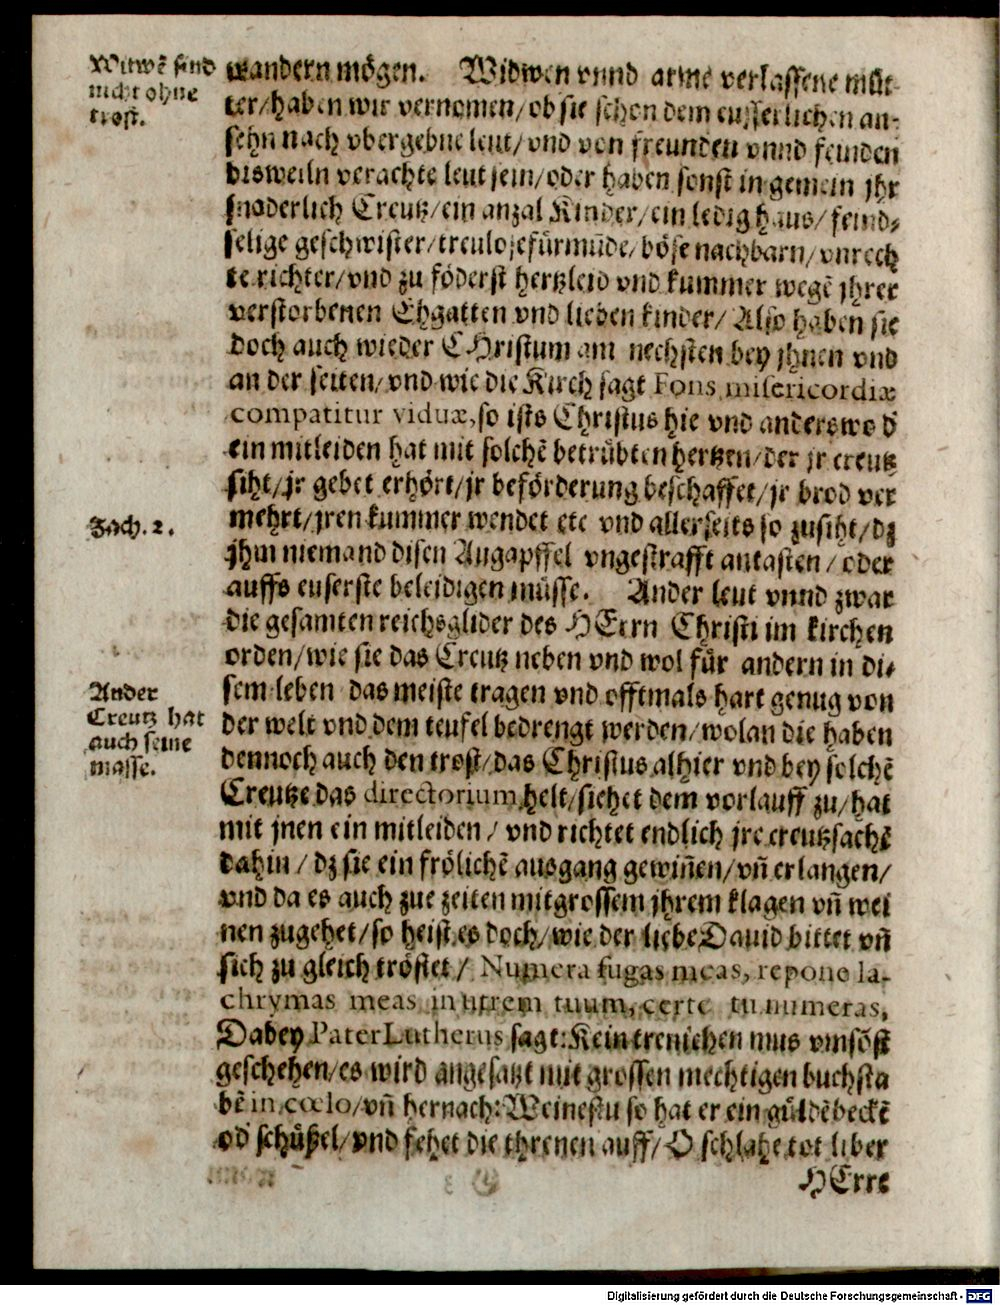 Witwẽ sind
nicht ohne
trost.
wandern mögen. Widwen vnnd arme verlassene müt-
ter/haben wir vernomen/ob sie schon dem eusserlichen an-
sehn nach vbergebne leut/vnd von freunden vnnd feinden
bisweiln verachte leut sein/oder haben sonst in gemein jhr
sonderlich Creutz/ein anzal Kinder/ein ledig haus/feind-
selige geschwister/treulose fürmũde/böse nachbarn/vnrech
te richter/vnd zu föderst hertzleid vnd kummer wegẽ jhrer
verstorbenen Ehgatten vnd lieben kinder/Also haben sie
doch auch wieder CHristum am nechsten bey jhnen vnd
an der seiten/vnd wie die Kirch sagt Fons misericordiæ
compatitur viduæ,so ists Christus hie vnd anderswo d'
ein mitleiden hat mit solchẽ betrübten hertzen/der jr creutz
siht/jr gebet erhört/jr beförderung beschaffet/jr brod ver
mehrt/jren kummer wendet etc vnd allerseits so zusiht/dz
Zach. 2.
jhm niemand disen Augapffel vngestrafft antasten/oder
auffs euserste beleidigen müsse. Ander leut vnnd zwar
die gesamten reichsglider des HErrn Christi im kirchen
orden/wie sie das Creutz neben vnd wol für andern in di-
sem leben das meiste tragen vnd offtmals hart genug von
Ander
Creutz hat
auch seine
masse.
der welt vnd dem teufel bedrengt werden/wolan die haben
dennoch auch den trost/das Christus alhier vnd bey solchẽ
Creutze das directorium helt/siehet dem vorlauff zu/hat
mit jnen ein mitleiden/vnd richtet endlich jre creutzsachẽ
dahin/dz sie ein frölichẽ ausgang gewiñen/vñ erlangen/
vnd da es auch zue zeiten mit grossem jhrem klagen vñ wei
nen zugehet/so heist es doch/wie der liebe Dauid bittet vñ
sich zu gleich tröstet/ Numera fugas meas, repone la-
chrymas meas in utrem tuum, certe tu numeras,
Dabey Pater Lutherus sagt: Kein trenichen mus vmsõst
geschehen/es wird angesatzt mit grossen mechtigen buchsta
bẽ in cœlo/vñ hernach: Weinestu so hat er ein güldẽ beckẽ
od' schüssel/vnd fehet die threnen auff/O schlahe tot lieber
HErre
Digitalisierung gefördert durch die Deutsche Forschungsgemeinschaft - DFG